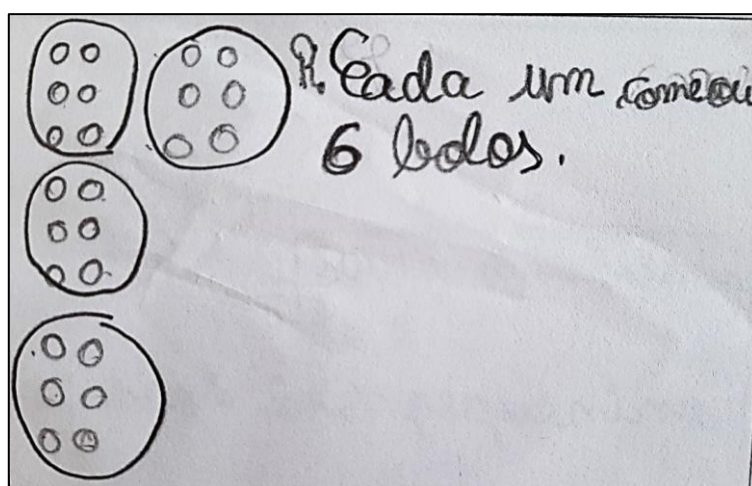 R. Cada um comeu
6 bolos.